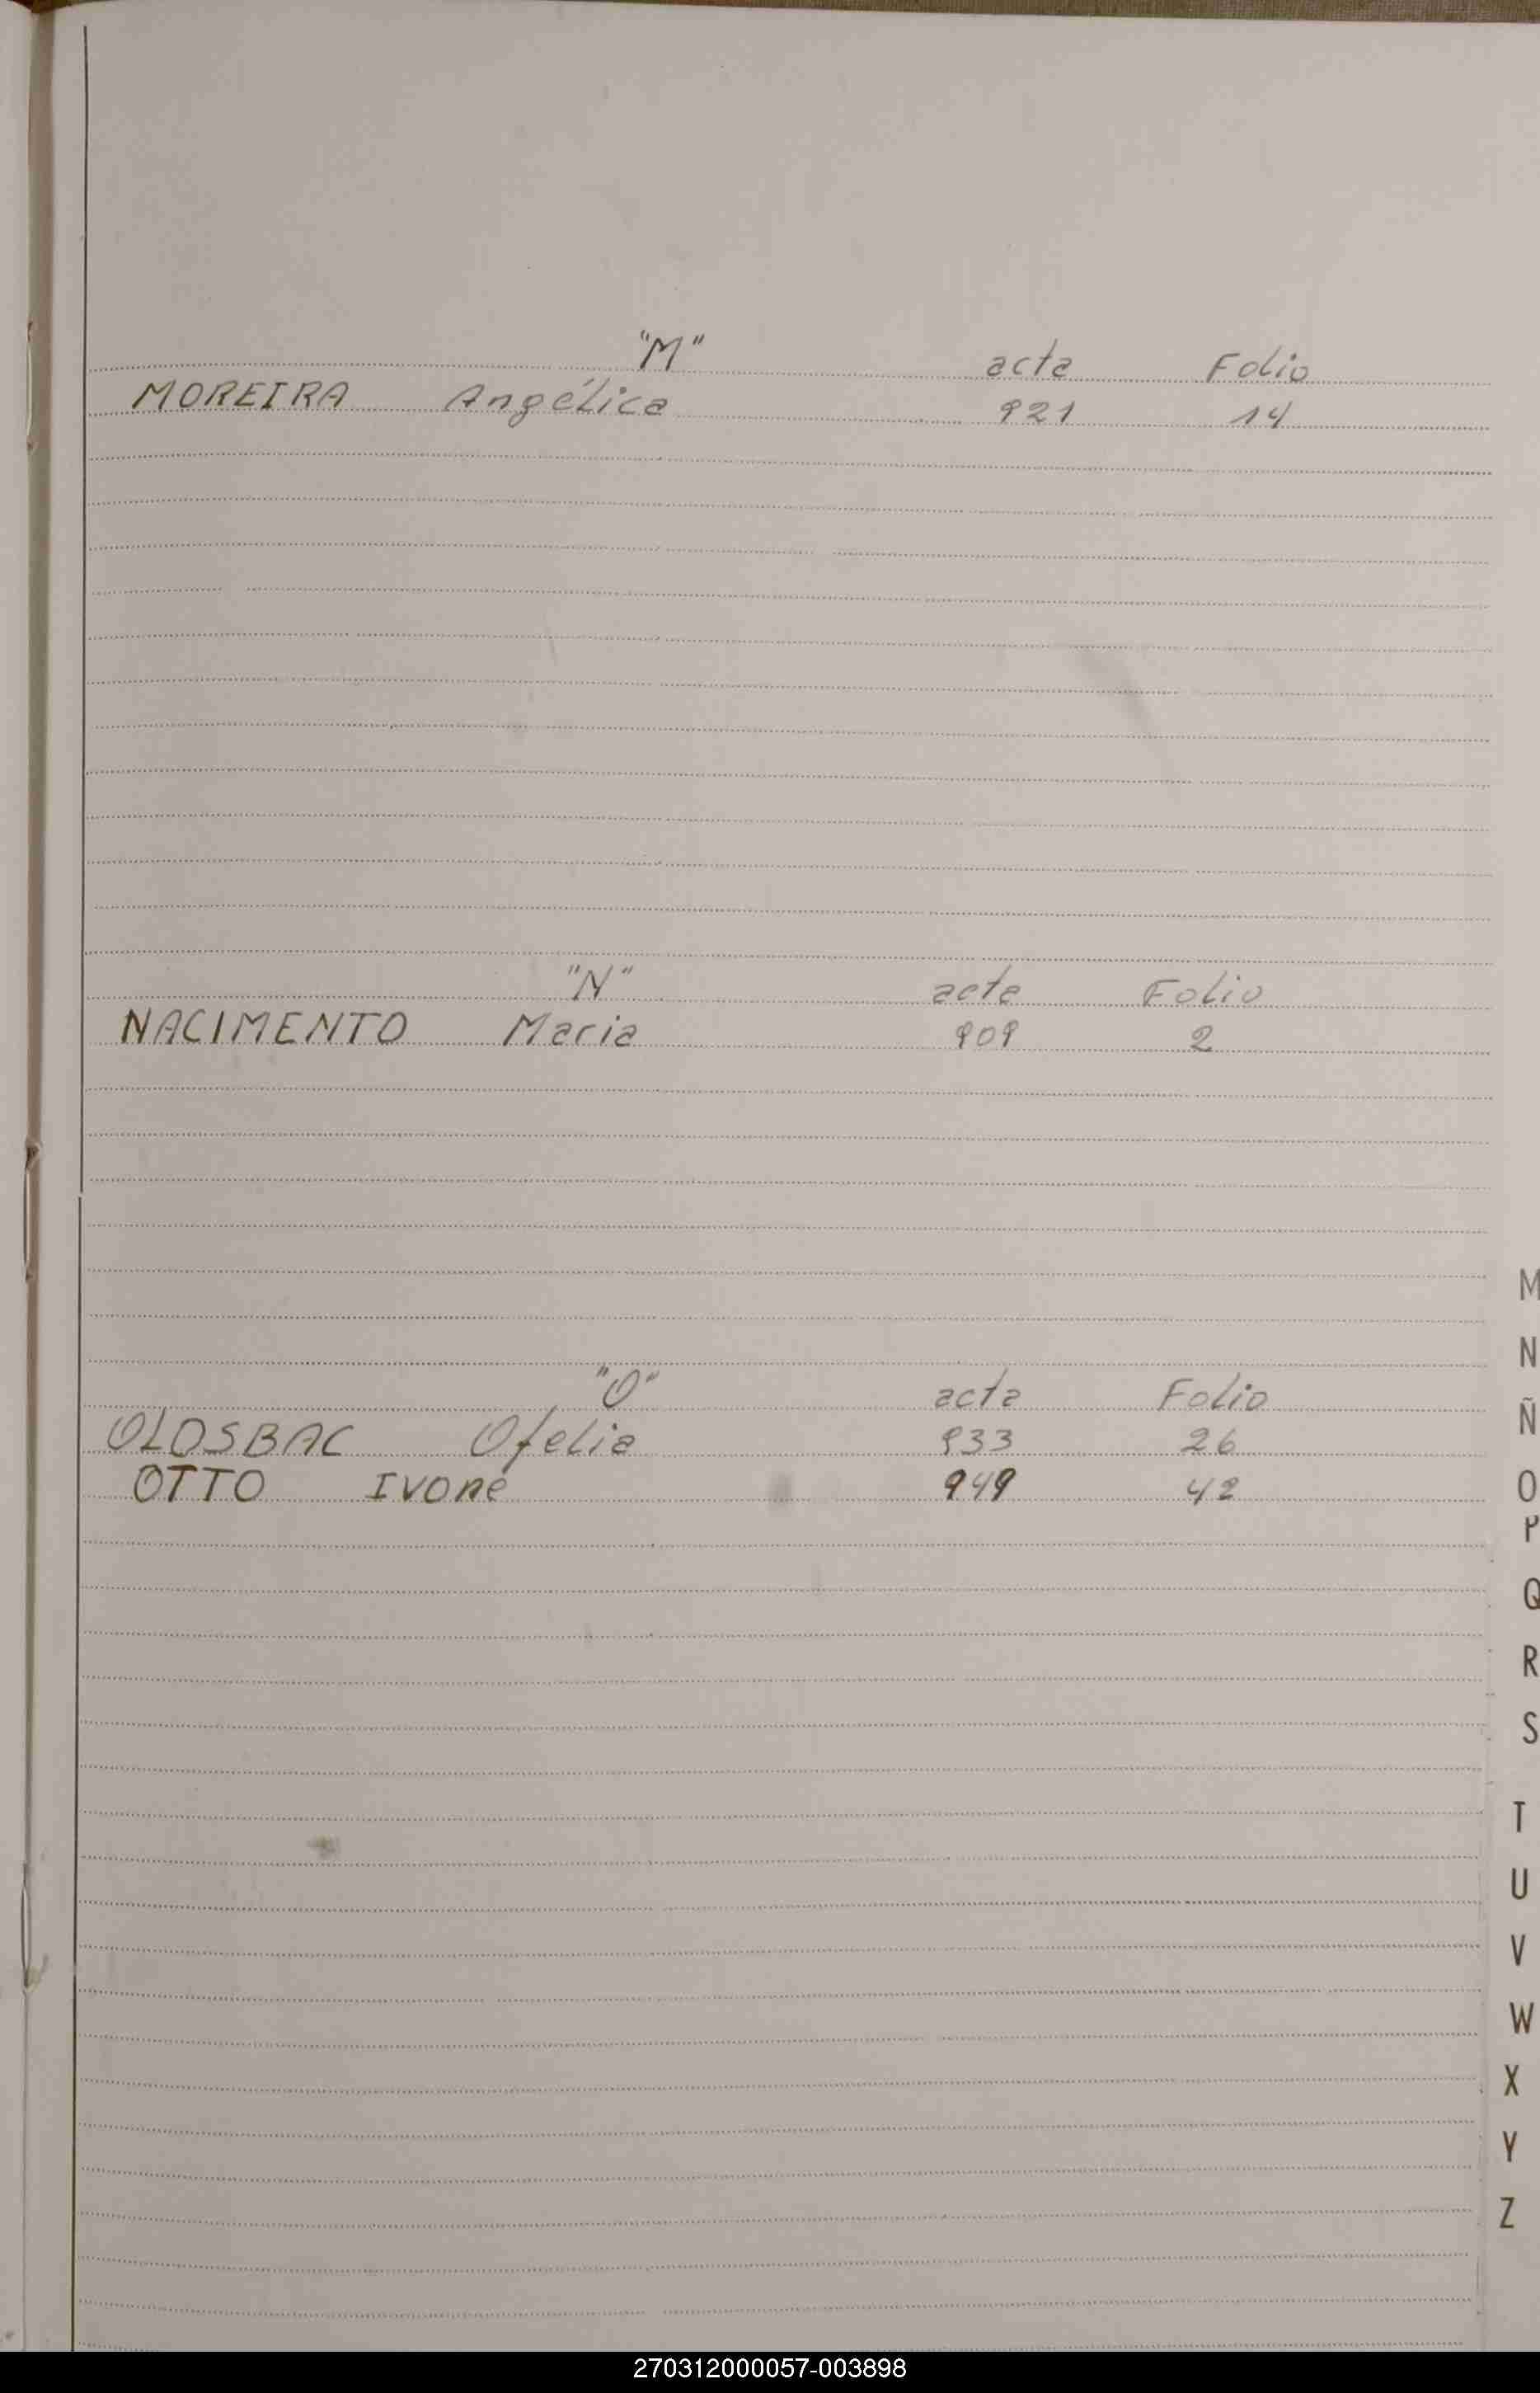 "M" acta Folio
MOREIRA Angélica 921 14
"N" acta Folio
NACIMENTO Maria 909 2
"O" acta Folio
OLOSBAC Ofelia 933 26
OTTO Ivone 949 42
M
N
Ñ
O
P
Q
R
S
T
U
V
W
X
Y
Z
270312000057-003898